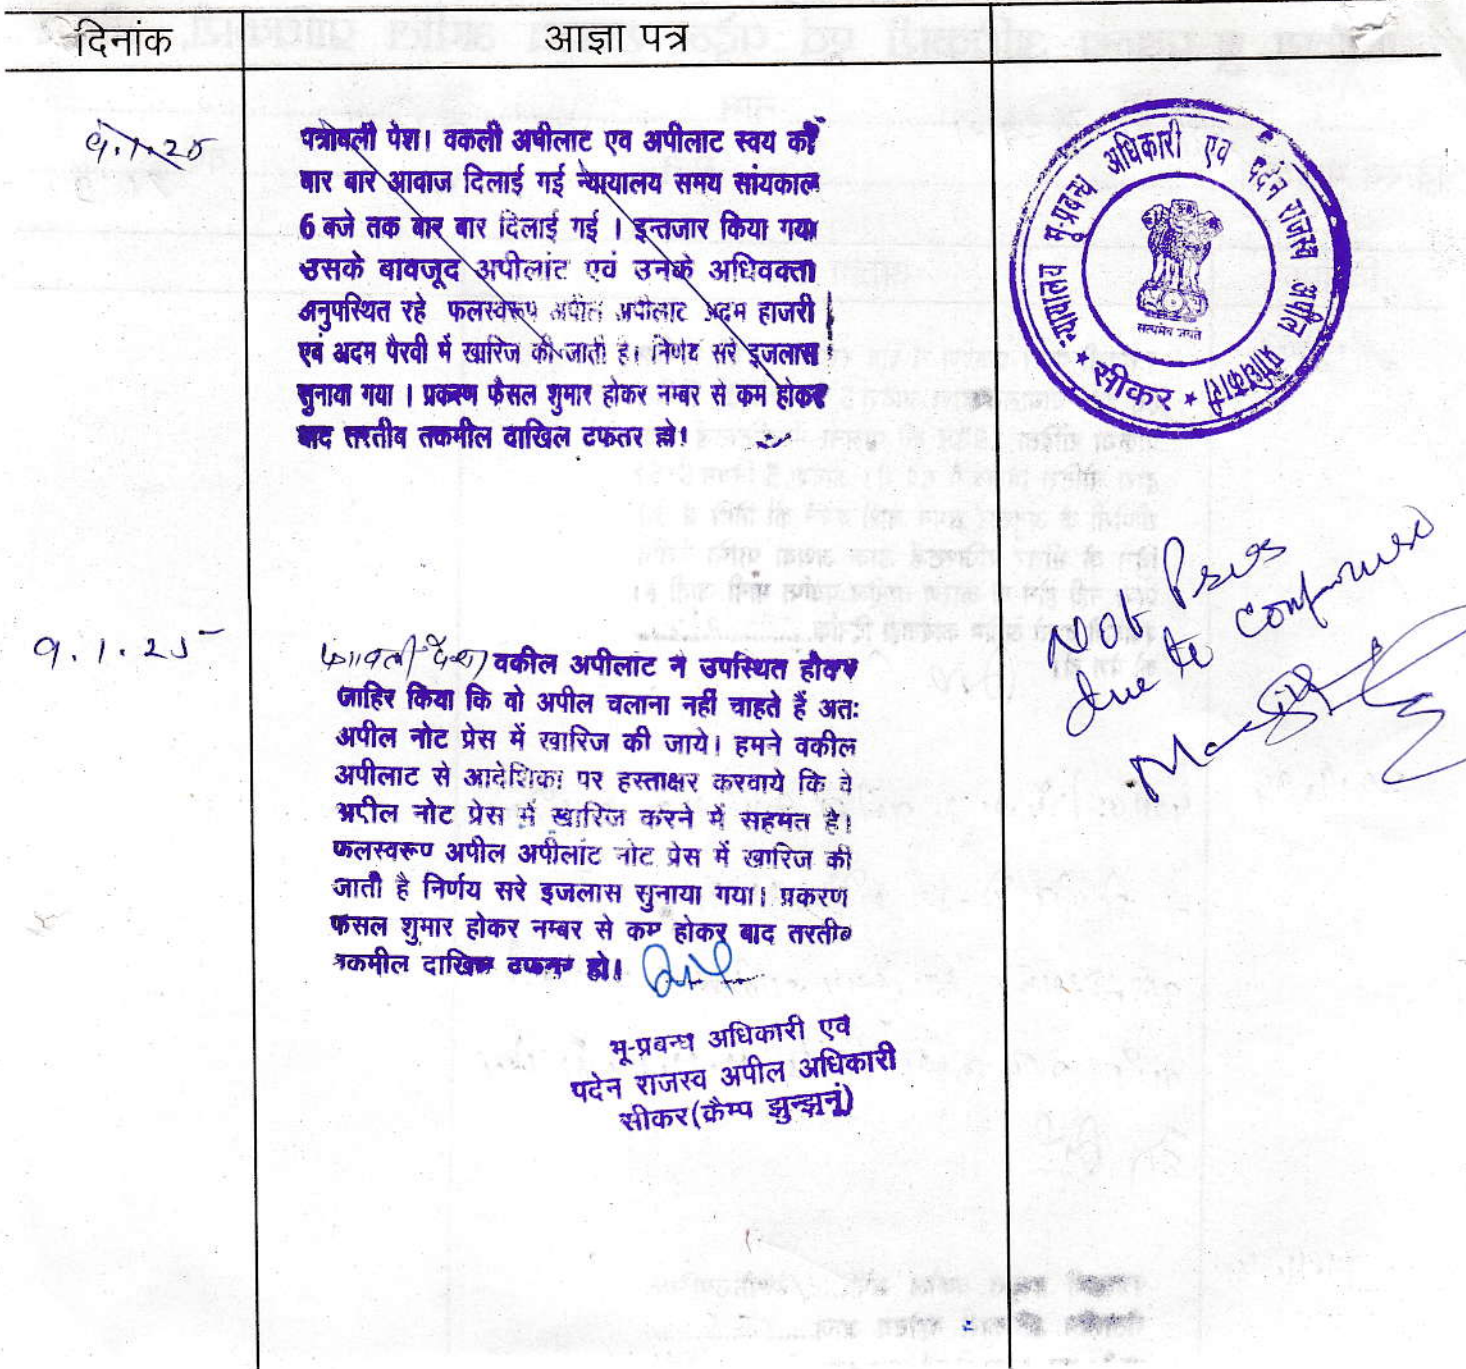 दिनांक
आज्ञा पत्र
9.1.25
पत्रावली पेश। वकली अपीलाट एव अपीलाट स्वय को
बार बार आवाज दिलाई गई न्यायालय समय सांयकाल
6 बजे तक बार बार दिलाई गई । इन्तजार किया गया
उसके बावजूद अपीलांट एवं उनके अधिवक्ता
अनुपस्थित रहे फलस्वरूप अपील अपीलाट अदम हाजरी
एवं अदम पैरवी में खारिज की जाती है। निर्णय सरे इजलास
सुनाया गया । प्रकरण फैसल शुमार होकर नम्बर से कम होकर
बाद तरतीब तकमील दाखिल टफतर हो!
न्यायालय भू प्रबन्ध अधिकारी एव पदेन राजस्व अपील प्राधिकारी
सत्यमेव जयते
* सीकर *
9.1.25
पत्रावली पेश। वकील अपीलाट ने उपस्थित होकर
जाहिर किया कि वो अपील चलाना नहीं चाहते हैं अतः
अपील नोट प्रेस में खारिज की जाये। हमने वकील
अपीलाट से आदेशिका पर हस्ताक्षर करवाये कि वे
अपील नोट प्रेस में खारिज करने में सहमत है।
फलस्वरूप अपील अपीलांट नोट प्रेस में खारिज की
जाती है निर्णय सरे इजलास सुनाया गया। प्रकरण
फसल शुमार होकर नम्बर से कम होकर बाद तरतीब
तकमील दाखिल दफतर हो।
भू-प्रबन्ध अधिकारी एवं
पदेन राजस्व अपील अधिकारी
सीकर(कैम्प झुन्झुनूं)
Not Press
due to compromise